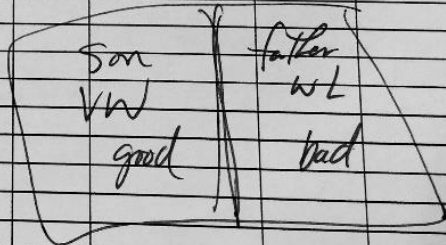 son
VW
good
father
WL
bad